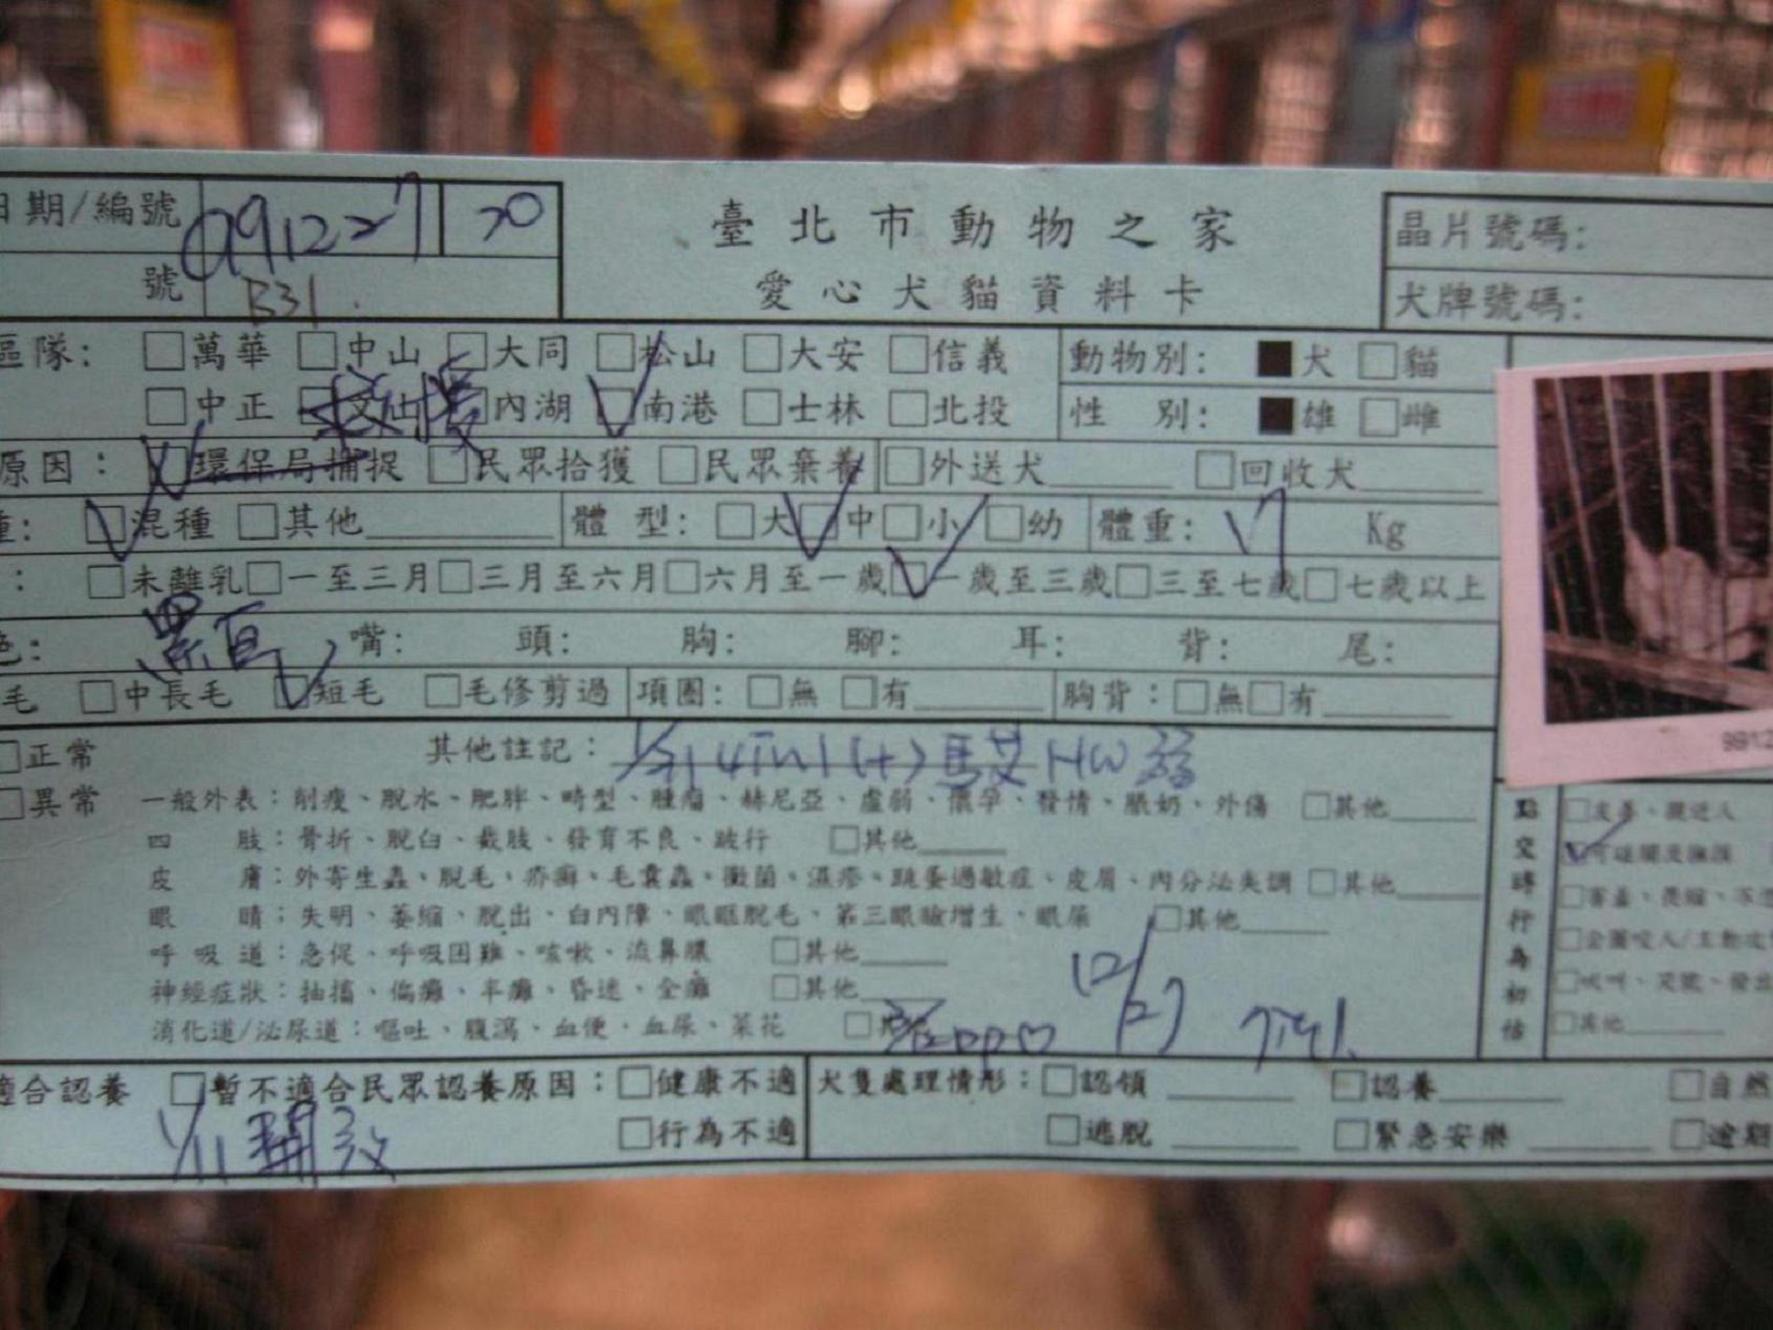 日期/編號 091227 20
臺北市動物之家
愛心犬貓資料卡
晶片號碼:
犬牌號碼:
號 B31.
區隊: □萬華 □中山 □大同 □松山 □大安 □信義
□中正 □文山 □內湖 □南港 □士林 □北投
救援
動物別: ■犬 □貓
性 別: ■雄 □雌
原因: □環保局捕捉 □民眾拾獲 □民眾棄養 □外送犬______ □回收犬______
□混種 □其他______ 體 型: □大 □中 □小 □幼 體重: Kg
: □未離乳 □一至三月 □三月至六月 □六月至一歲 □一歲至三歲 □三至七歲 □七歲以上
色: 黑白 嘴: 頭: 胸: 腳: 耳: 背: 尾:
毛 □中長毛 □短毛 □毛修剪過 項圈: □無 □有______ 胸背: □無 □有______
□正常 其他註記: 4in1(+) HW
□異常 一般外表: 削瘦、脫水、肥胖、畸型、腫瘤、赫尼亞、虛弱、懷孕、發情、脹奶、外傷 □其他______
四 肢: 骨折、脫臼、截肢、發育不良、跛行 □其他______
皮 膚: 外寄生蟲、脫毛、疥癬、毛囊蟲、黴菌、濕疹、跳蚤過敏症、皮屑、內分泌失調 □其他______
眼 睛: 失明、萎縮、脫出、白內障、眼眶脫毛、第三眼瞼增生、眼屎 □其他______
呼 吸 道: 急促、呼吸困難、咳嗽、流鼻膿 □其他______
神經症狀: 抽搐、偏癱、半癱、昏迷、全癱 □其他______
消化道/泌尿道: 嘔吐、腹瀉、血便、血尿、菜花 □其他
12/27
點交時行為初估
□友善、親近人
□可碰觸及撫摸
□害羞、畏縮
□企圖咬人/主動攻
□吠叫
□其他______
適合認養 □暫不適合民眾認養原因: □健康不適
□行為不適
1/11 開放
犬隻處理情形: □認領______ □認養______ □自然
□逃脫______ □緊急安樂______ □逾期
9912